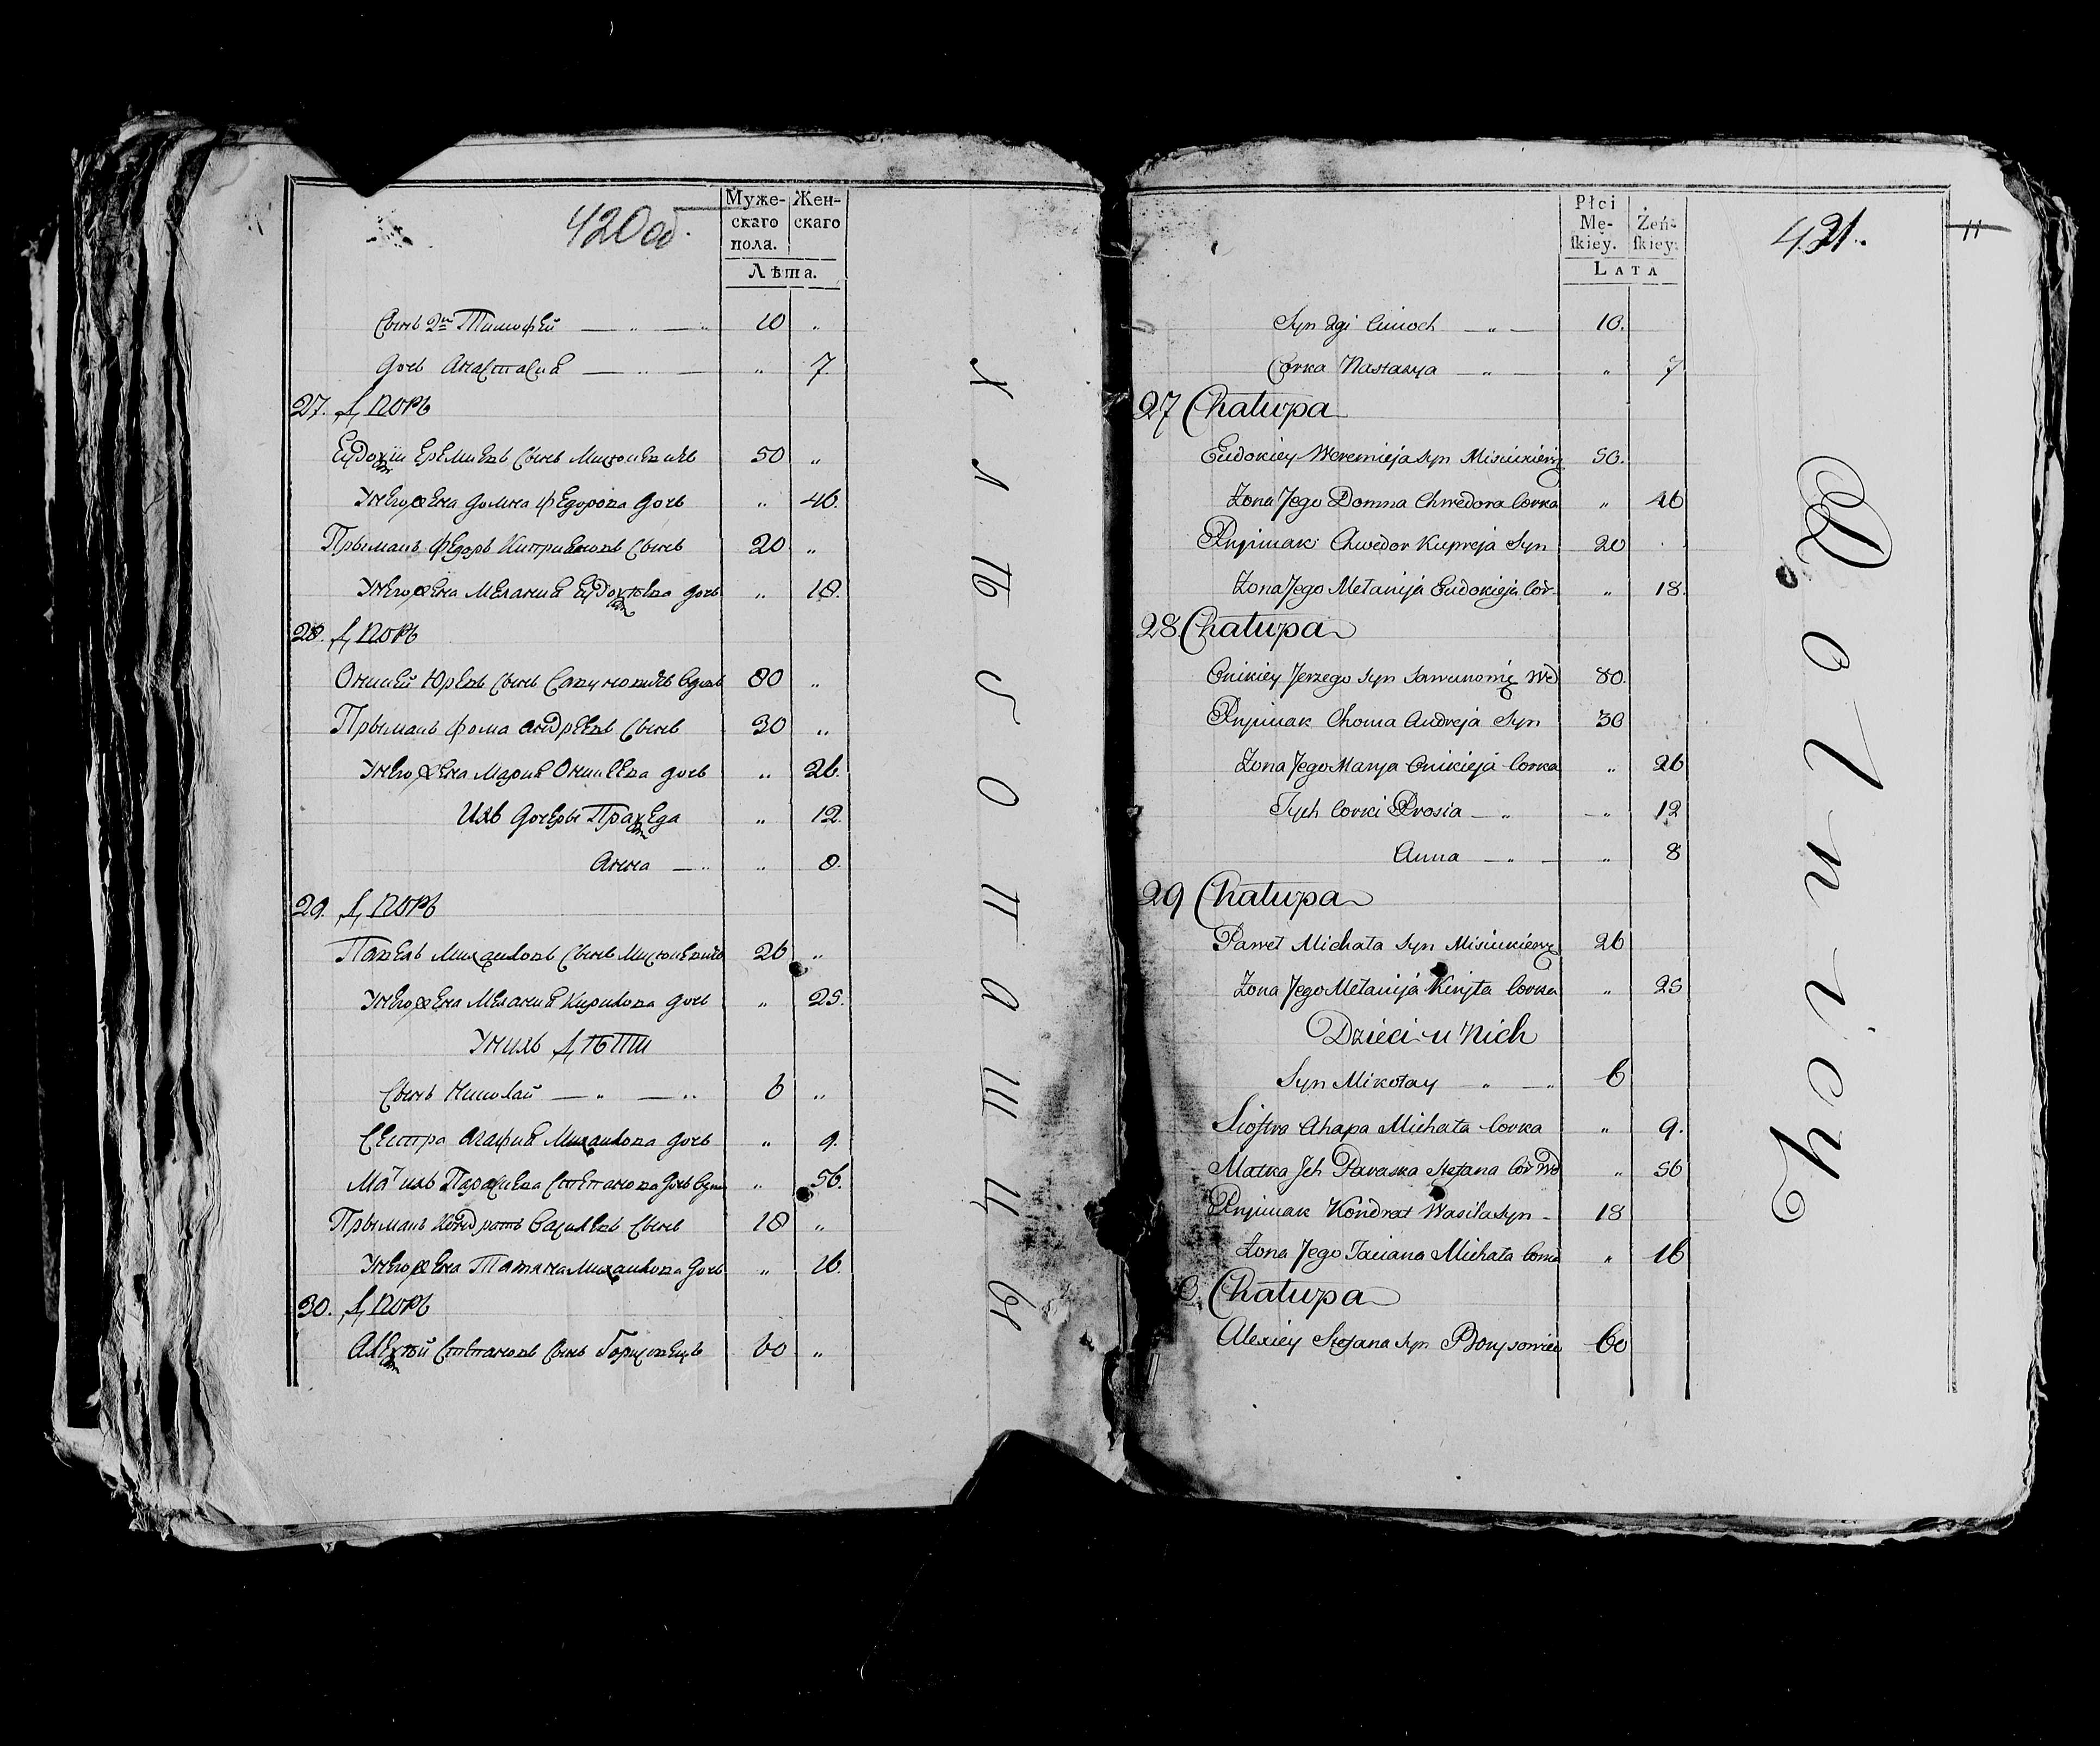 420 об.
Муже-
скаго
пола.
Жен-
скаго
Лѣта.
Сынъ 2й Тимофей — „ — „ 10 „
Дочь Анастасия — „ — „ 7
27. Дворъ
Евдокій Еремиевъ Сынъ Мисюкевичъ 50 „
У него жена Домна Федорова дочь „ 46.
Прымакъ Федоръ Киприяновъ Сынъ 20 „
У него жена Мелания Евдокиева дочь „ 18.
28. Дворъ
Оникей Юревъ Сынъ Савуновичъ вдовъ 80 „
Прымакъ Фома Андреевъ Сынъ 30 „
У него жена Мария Оникеева дочь „ 26.
Ихъ дочери Пракседа „ 12.
Анна — „ „ 8.
29. Дворъ
Павелъ Михайловъ Сынъ Мисюкевичъ 26 „
У него жена Мелания Кирилова дочь „ 25.
У нихъ Дѣти
Сынъ Николай — „ — „ 6 „
Сестра Агафия Михайлова дочь „ 9.
Мать ихъ Параскева Степанова дочь вдова „ 56.
Прымакъ Кондратъ Василевъ Сынъ 18 „
У него жена Татяна Михайлова дочь „ 16.
30. Дворъ
Алексей Степановъ Сынъ Борисовецъ 60 „
Хлѣбопашцы
Płci
Mę-
ſkiey.
Żeń-
ſkiey.
Lata
421.
11
Syn 2gi Cimoch — „ — 10.
Corka Nastazya — „ — „ 7
27 Chałupa
Eudokiey Weremieja Syn Misiukiewicz 50.
Żona Jego Domna Chwedora Corka „ 46
Pryimak Chwedor Kupreja Syn 20
Żona Jego Mełanija Eudokieja Cor. „ 18.
28. Chałupa
Onikiey Jerzego Syn Sawunowicz Wd 80.
Pryimak Choma Andreja Syn 30
Żona Jego Marya Onikieja Corka „ 26
Tych Corki Prosia — „ — „ 12
Anna — „ — „ 8
29 Chałupa
Paweł Michała Syn Misiukiewicz 26
Żona Jego Mełanija Kiryła Corka „ 25
Dzieci u Nich
Syn Mikołay „ — „ 6
Sioſtra Ahapa Michała Corka „ 9.
Matka Jch Paraska Stefana Cor Wd „ 56
Pryimak Kondrat Wasila Syn — 18
Żona Jego Taciana Michała Corka „ 16
0. Chałupa
Alexiey Stefana Syn Borysowiec 60
Rolnicy